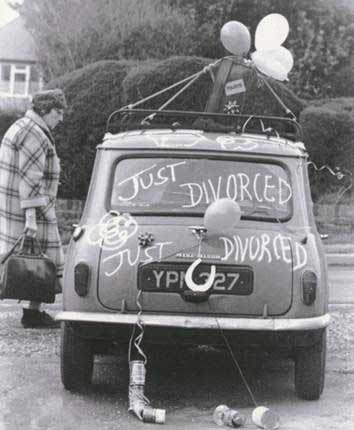 JUST DIVORCED
JUST DIVORCED